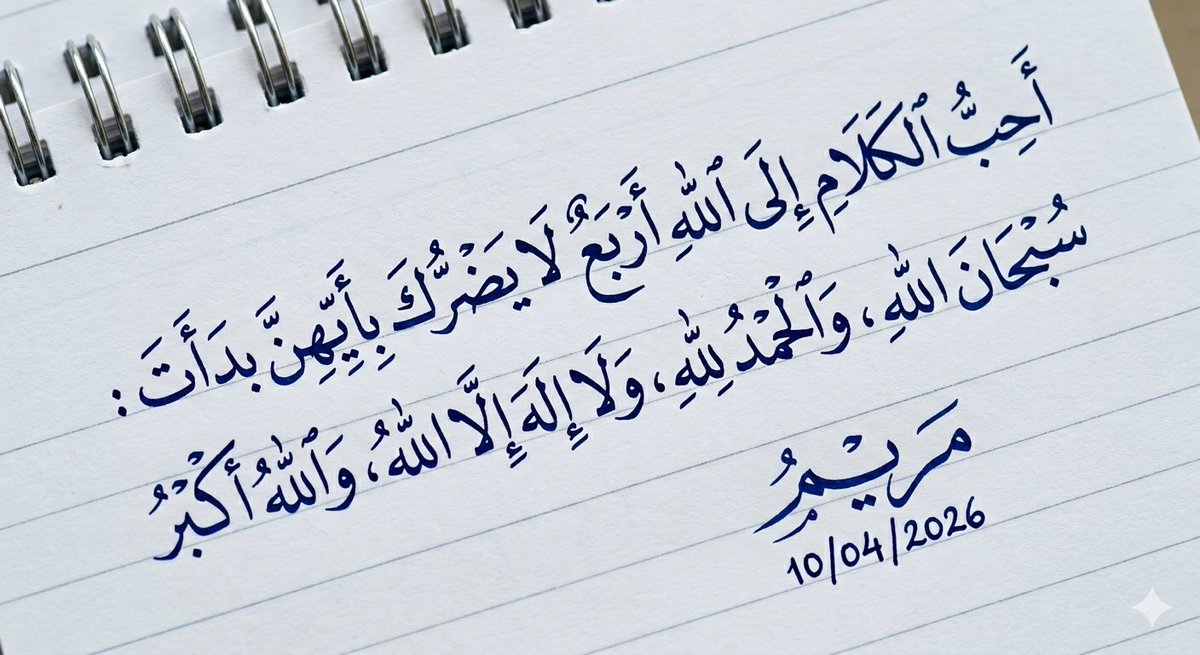 أَحَِبُّ ٱلْكَلَامِ إِلَى ٱللَّهِ أَرْبَعٌ لَا يَضْرُّكَ بِأَيِّهِنَّ بَدَأَتَ :
سُبْحَانَ اللَّهِ، وَٱلْحَمْدُ لِلَّهِ، وَلَا إِلَهَ إِلَّا اللَّهُ، وَٱللَّهُ أَكْبَرُ
مَرْيَمُ
10/04/2026